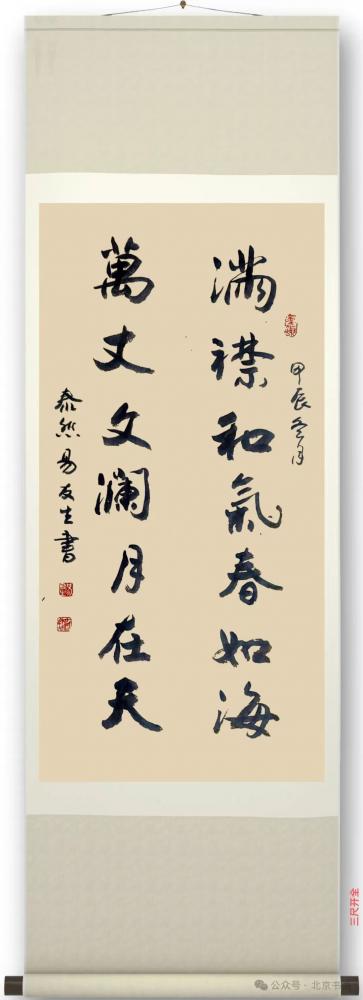 满襟和氣春如海
甲辰冬月
萬丈文澜月在天
泰然易友生書
三尺开全
公众号·北京书